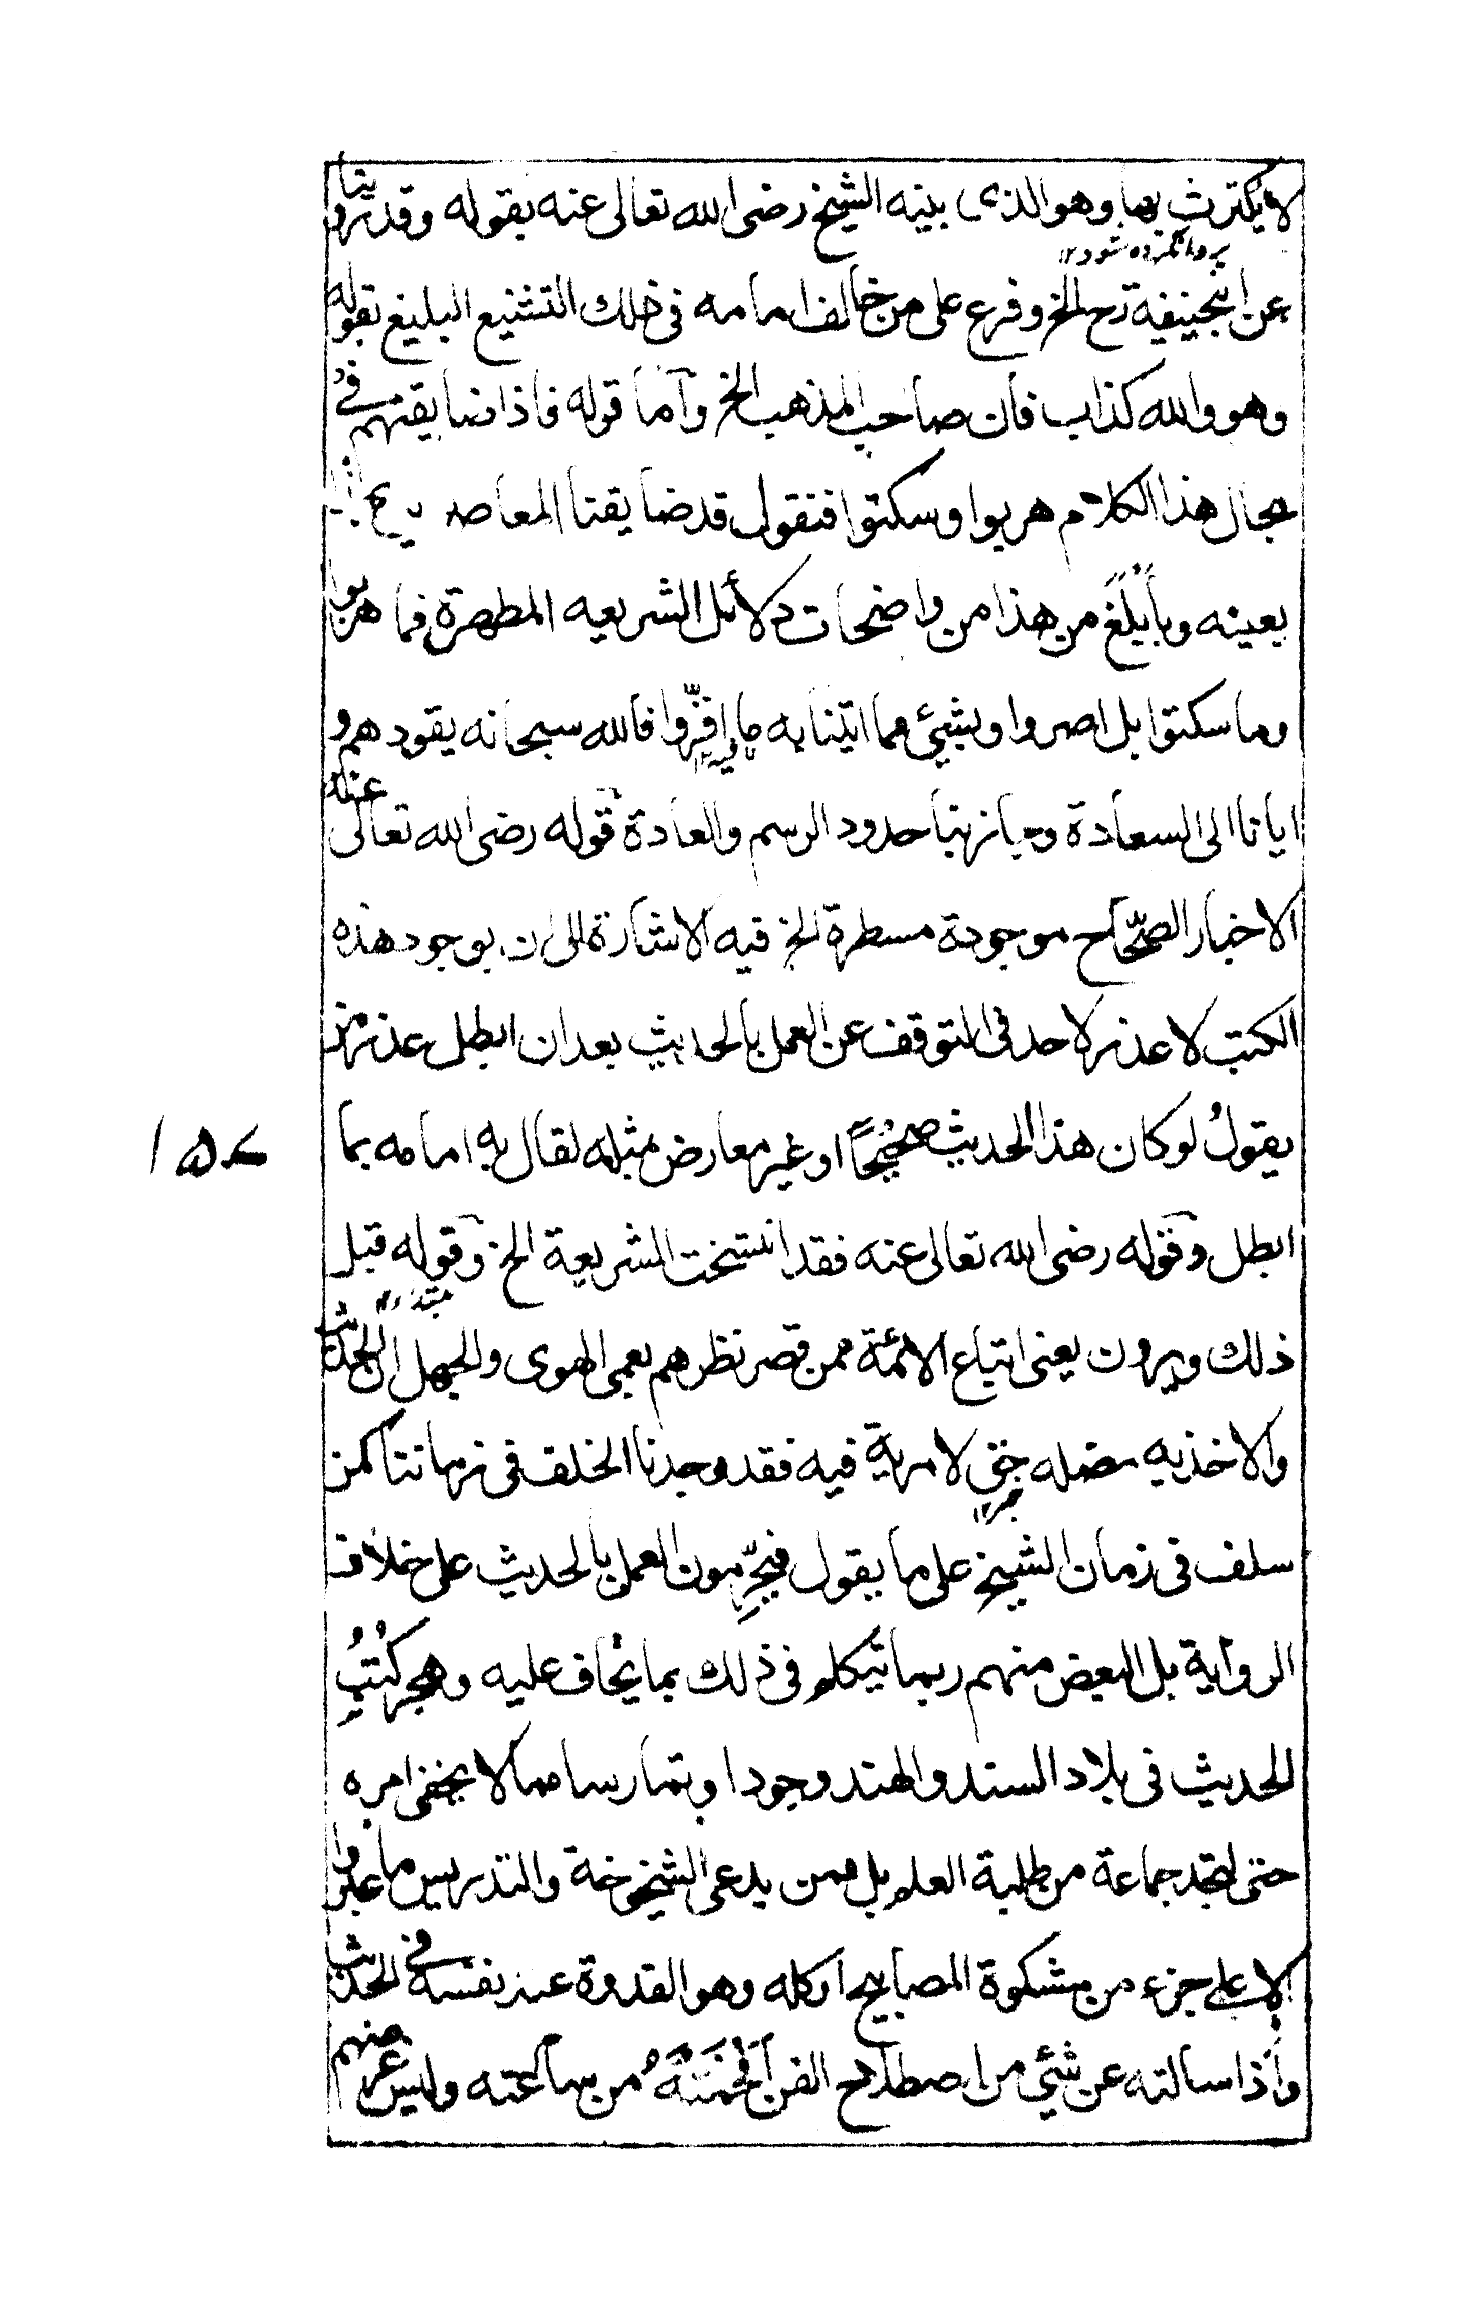 لا يكترث بها وهو الذى بينه الشيخ رضى الله تعالى عنه بقوله وقد روينا
پروا نكرده شود ١٢
عن ابيحنيفة رح الخ وفرع على من خالف امامه فى ذلك التشنيع البليغ بقوله
وهو والله كذاب فان صاحب المذهب الخ وآما قوله فاذا ضايقتهم فى
مجال هذا الكلام هربوا وسكتوا فنقول قد ضايقنا المعاصرين
بعينه وبأبلغ من هذا من واضحات دلائل الشريعه المطهرة فما هربوا
وما سكتوا بل اصروا وبشيئ مما اتينا به ما اقرّوا فالله سبحانه يقودهم و
ايانا الى السعادة وجازبنا حدود الرسم والعادة قوله رضى الله تعالى عنه
الاخبار الصحّاح موجودة مسطرة الخ فيه الاشارة الى ان بوجود هذه
الكتب لا عذر لاحد فى التوقف عن العمل بالحديث بعد ان ابطل عذر من
يقولُ لو كان هذا الحديث صحيحًا او غير معارض بمثله لقال به امامه بما
١٥٧
ابطل وقوله رضى الله تعالى عنه فقد انتسخت الشريعة الخ وقوله قبل
ذلك ويرون يعنى اتباع الائمة ممن قصر نظرهم بعمى الهوى والجهل ان الحديث
مبتدا ١٢
والاخذ به مضله حق لا مرية فيه فقد وجدنا الخلف فى زماننا كمن
خبر ١٢
سلف فى زمان الشيخ على ما يقول فيجرّمون العمل بالحديث على خلاف
الرواية بل البعض منهم ربما تيكلم فى ذلك بما يخاف عليه وهجر كتبُ
الحديث فى بلاد السند والهند وجودا وتمارسا مما لا يخفى امره
حتى لتجد جماعة من طلبة العلم بل ممن يدعى الشيخوخة والتدريس ما عبروا
الا على جزء من مشكوة المصابيح او كله وهو القدوة عند نفسه فى الحديث
وأذا سالته عن شئي من اصطلاح الفن افحمته من ساعته وليس غرضهم